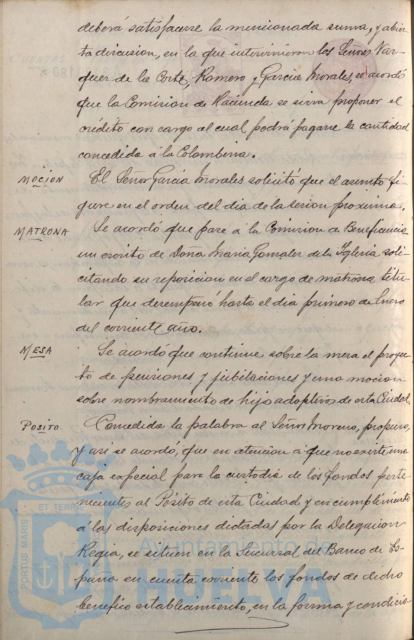 deberá satisfacerse la mencionada suma, y abier-
ta discusion, en la que intervinieron los Señores Vaz-
quez de la Corte, Romero y Garcia Morales se acordó
que la Comision de Hacienda se sirva proponer el
crédito con cargo al cual podrá pagarse la cantidad
concedida á la Colombina.
MOCION
El Señor Garcia Morales solicitó que el asunto fi-
gure en el orden del dia de la sesion proxima.
MATRONA
Se acordó que pase a la Comision de Beneficencia
un escrito de Doña Maria Gonzalez de la Iglesia soli-
citando su reposicion en el cargo de matrona titu-
lar que desempeñó hasta el dia primero de Enero
del corriente año.
MESA
Se acordó que continue sobre la mesa el proyec-
to de pensiones y jubilaciones y una mocion
sobre nombramiento de hijo adoptivo de esta Ciudad.
POSITO
Concedida la palabra al Señor Moreno, propuso,
y asi se acordó, que en atencion á que no existe una
caja especial para la custodia de los fondos perte-
necientes al Pósito de esta Ciudad y en cumplimiento
á las disposiciones dictadas por la Delegacion
Regia, se situen en la Sucursal del Banco de Es-
paña en cuenta corriente los fondos de dicho
benefico establecimiento, en la forma y condicio-
PORTUS MARIS ET TERRAE
Ayuntamiento de
HUELVA